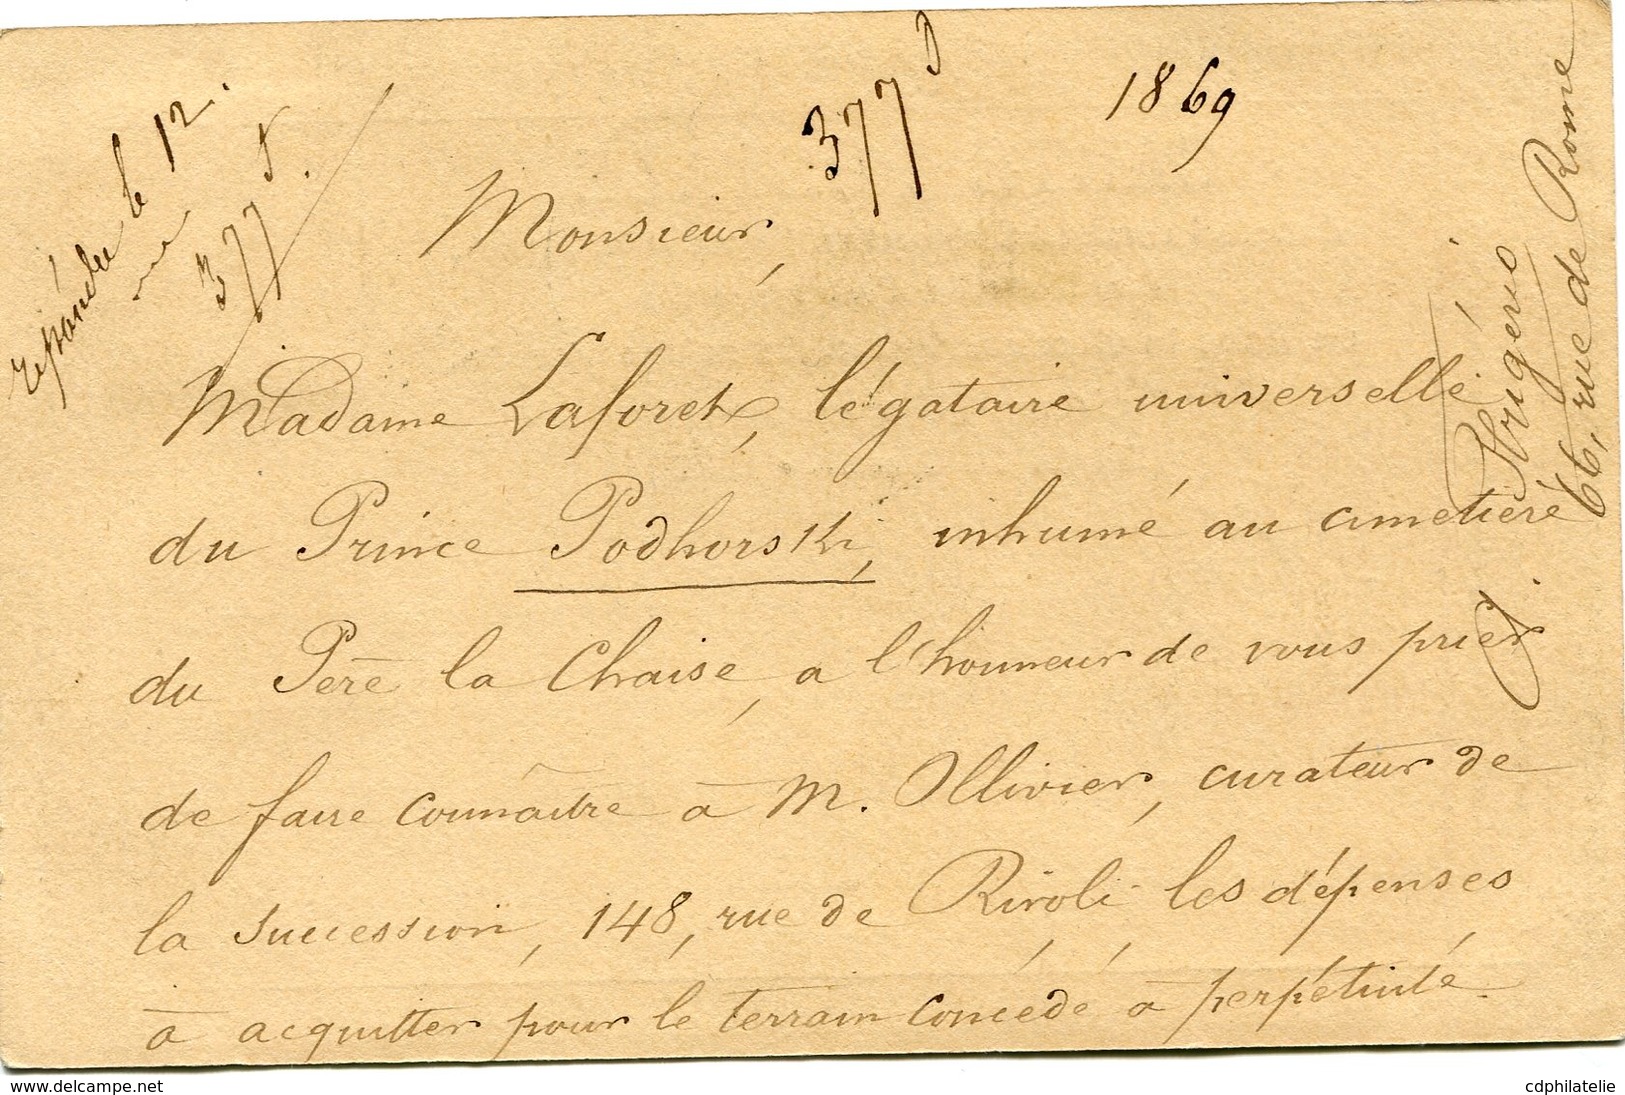 répondu le 12.
377
377
1869
Monsieur,
Madame Laforet, légataire universelle
du Prince Podhorski, inhumé au cimetière
du Père la Chaise, a l'honneur de vous prier
de faire connaître à M. Ollivier, curateur de
la succession, 148, rue de Rivoli, les dépenses
à acquitter pour le terrain concédé à perpétuité.
66, rue de Rome
www.delcampe.net
cdphilatelie